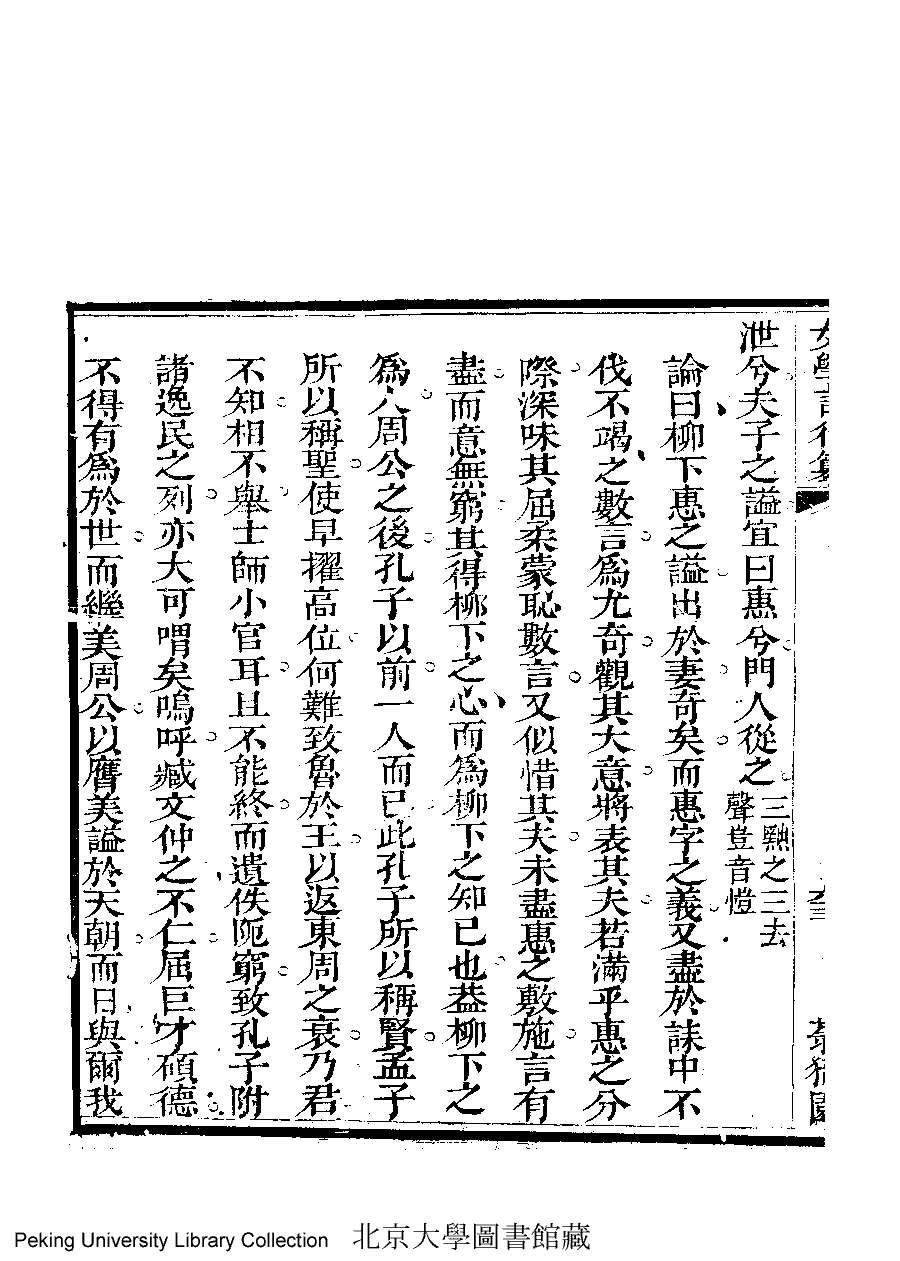 女學言行纂
泄兮夫子之謚宜曰惠兮門人從之三黜之三去聲豈音愷
論曰柳下惠之謚出於妻奇矣而惠字之義又盡於誄中不
伐不竭之數言爲尤奇觀其大意將表其夫若滿乎惠之分
際深味其屈柔蒙恥數言又似惜其夫未盡惠之敷施言有
盡而意無窮其得柳下之心而爲柳下之知已也葢柳下之
爲人周公之後孔子以前一人而已此孔子所以稱賢孟子
所以稱聖使早擢高位何難致魯於王以返東周之衰乃君
不知相不舉士師小官耳且不能終而遺佚阨窮致孔子附
諸逸民之列亦大可喟矣嗚呼臧文仲之不仁屈巨才碩德
不得有爲於世而繼美周公以膺美謚於天朝而日與爾我
Peking University Library Collection 北京大學圖書館藏